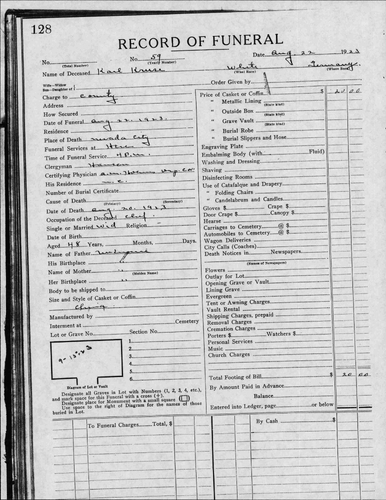 128
RECORD OF FUNERAL
No. No. 59 Date Aug 22 1923
(Total Number) (Yearly Number)
Name of Deceased Karl Kruse White Germany
(What Race) (Where Born)
Order Given by
Charge to County
Address
How Secured
Date of Funeral Aug. 22. 1923.
Residence
Place of Death Nevada City
Funeral Services at Here
Time of Funeral Service 4 P.M.
Clergyman
Certifying Physician
His Residence
Number of Burial Certificate
Cause of Death
(Primary)
Date of Death Aug. 20. 1923
Occupation of the Deceased Chef.
Single or Married Wid Religion
Date of Birth
Aged 48 Years, Months, Days.
Name of Father
His Birthplace
Name of Mother
(Maiden Name)
Her Birthplace
Body to be shipped to
Size and Style of Casket or Coffin
Manufactured by
Interment at Cemetery
Lot or Grave No. Section No.
1.
2.
3.
4.
5.
6.
Diagram of Lot or Vault
Designate all Graves in Lot with Numbers (1, 2, 3, 4, etc.),
and mark space for this Funeral with a cross (+).
Designate place for Monument with a small square
Use space to right of Diagram for names of those
buried in Lot.
Price of Casket or Coffin $ 20 00
" Metallic Lining
(State Kind)
" Outside Box
(State Kind)
" Grave Vault
(State Kind)
" Burial Robe
" Burial Slippers and Hose
Engraving Plate
Embalming Body (with Fluid)
Washing and Dressing
Shaving
Disinfecting Rooms
Use of Catafalque and Drapery
" Folding Chairs
" Candelabrum and Candles
Gloves $ Crape $
Door Crape $ Canopy $
Hearse
Carriages to Cemetery @ $
Automobiles to Cemetery @ $
Wagon Deliveries
City Calls (Coaches)
Death Notices in Newspapers
(Names of Newspapers)
Flowers
Outlay for Lot
Opening Grave or Vault
Lining Grave
Evergreen
Tent or Awning Charges
Vault Rental
Shipping Charges, prepaid
Removal Charges
Cremation Charges
Porters $ Watchers $
Personal Services
Music
Church Charges
Total Footing of Bill $ 20 00
By Amount Paid in Advance
Balance
Entered into Ledger, page or below
To Funeral Charges Total $
By Cash $